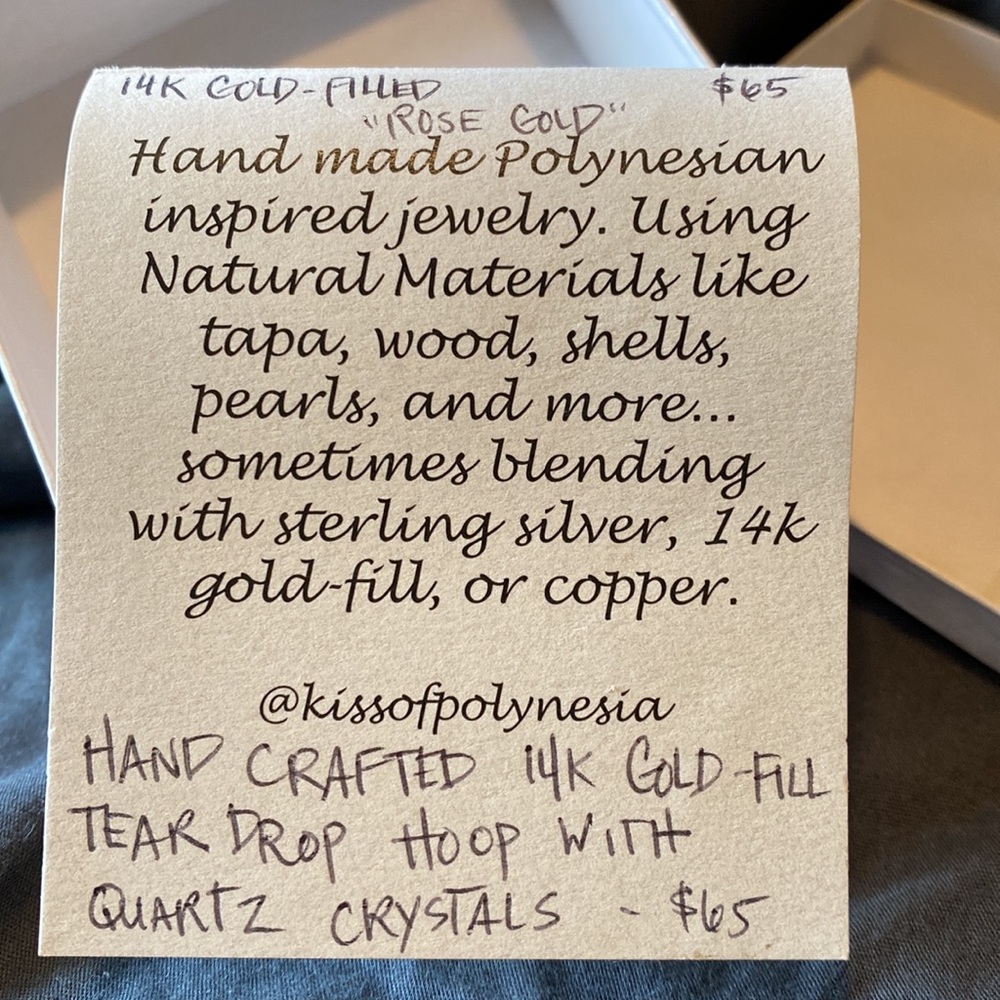 14K GOLD-FILLED $65
"ROSE GOLD"
Hand made Polynesian
inspired jewelry. Using
Natural Materials like
tapa, wood, shells,
pearls, and more...
sometimes blending
with sterling silver, 14k
gold-fill, or copper.
@kissofpolynesia
HAND CRAFTED 14K GOLD-FILL
TEAR DROP HOOP WITH
QUARTZ CRYSTALS - $65